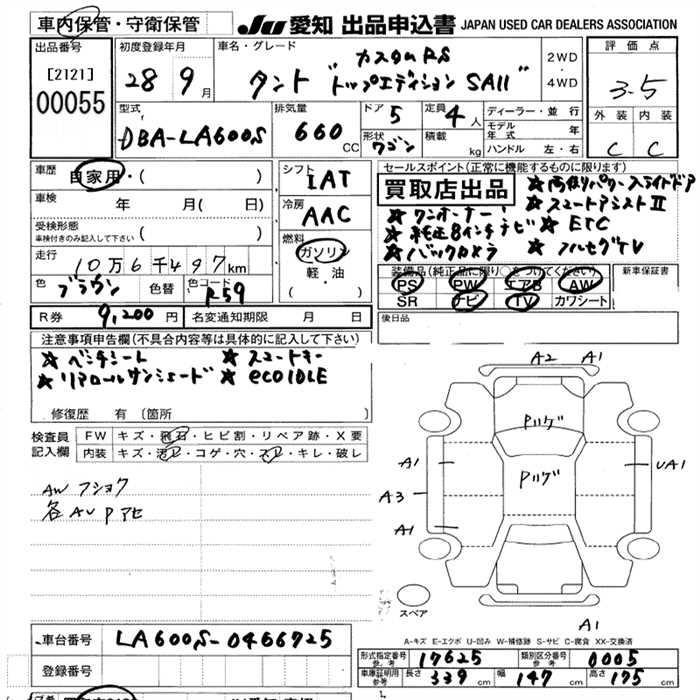 車内保管・守衛保管
JU 愛知 出品申込書 JAPAN USED CAR DEALERS ASSOCIATION
出品番号 初度登録年月 車名・グレード 評価点
[2121] 28 9月 タント カスタムRS 2WD・4WD 3.5
00055 "トップエディション SAII"
外装 内装
C C
型式 排気量 ドア 定員 ディーラー・並行
DBA-LA600S 660CC 5 4人 モデル年式 年
形状 ワゴン 積載 kg ハンドル 左・右
車歴 自家用・( )
シフト IAT
セールスポイント(正常に機能するものに限ります)
買取店出品 ★両側パワースライドドア
★ワンオーナー! ★スマートアシストII
★純正8インチナビ ★ETC
★バックカメラ ★フルセグTV
車検 年 月( 日)
冷房 AAC
受検形態
車検付きのみ記入して下さい ( )
燃料 ガソリン 軽・油 ( )
走行 10万6千497km
色 ブラウン 色替 色コード R59
装備品(純正品に限り○をつけてください) 新車保証書
PS PW エアB AW
SR ナビ TV カワシート
R券 9,200円 名変通知期限 月 日
後日品
注意事項申告欄(不具合内容等は具体的に記入して下さい)
★ベンチシート ★スマートキー
★リアロールサンシェード ★eco IDLE
修復歴 有 (箇所 )
検査員記入欄 FW キズ・飛石・ヒビ割・リペア跡・X要
内装 キズ・汚レ・コゲ・穴・スレ・キレ・破レ
AW フショク
各AU Pアセ
A2 A1
Pハゲ
Pハゲ
A1 UA1
A3
A1
A1
スペア
A-キズ E-エクボ U-凹み W-補修跡 S-サビ C-腐食 XX-交換済
車台番号 LA600S-0466725
登録番号
形式指定番号 参考 17625 類別区分番号 参考 0005
車庫証明記入欄 参考 長さ 339cm 幅 147cm 高さ 175cm